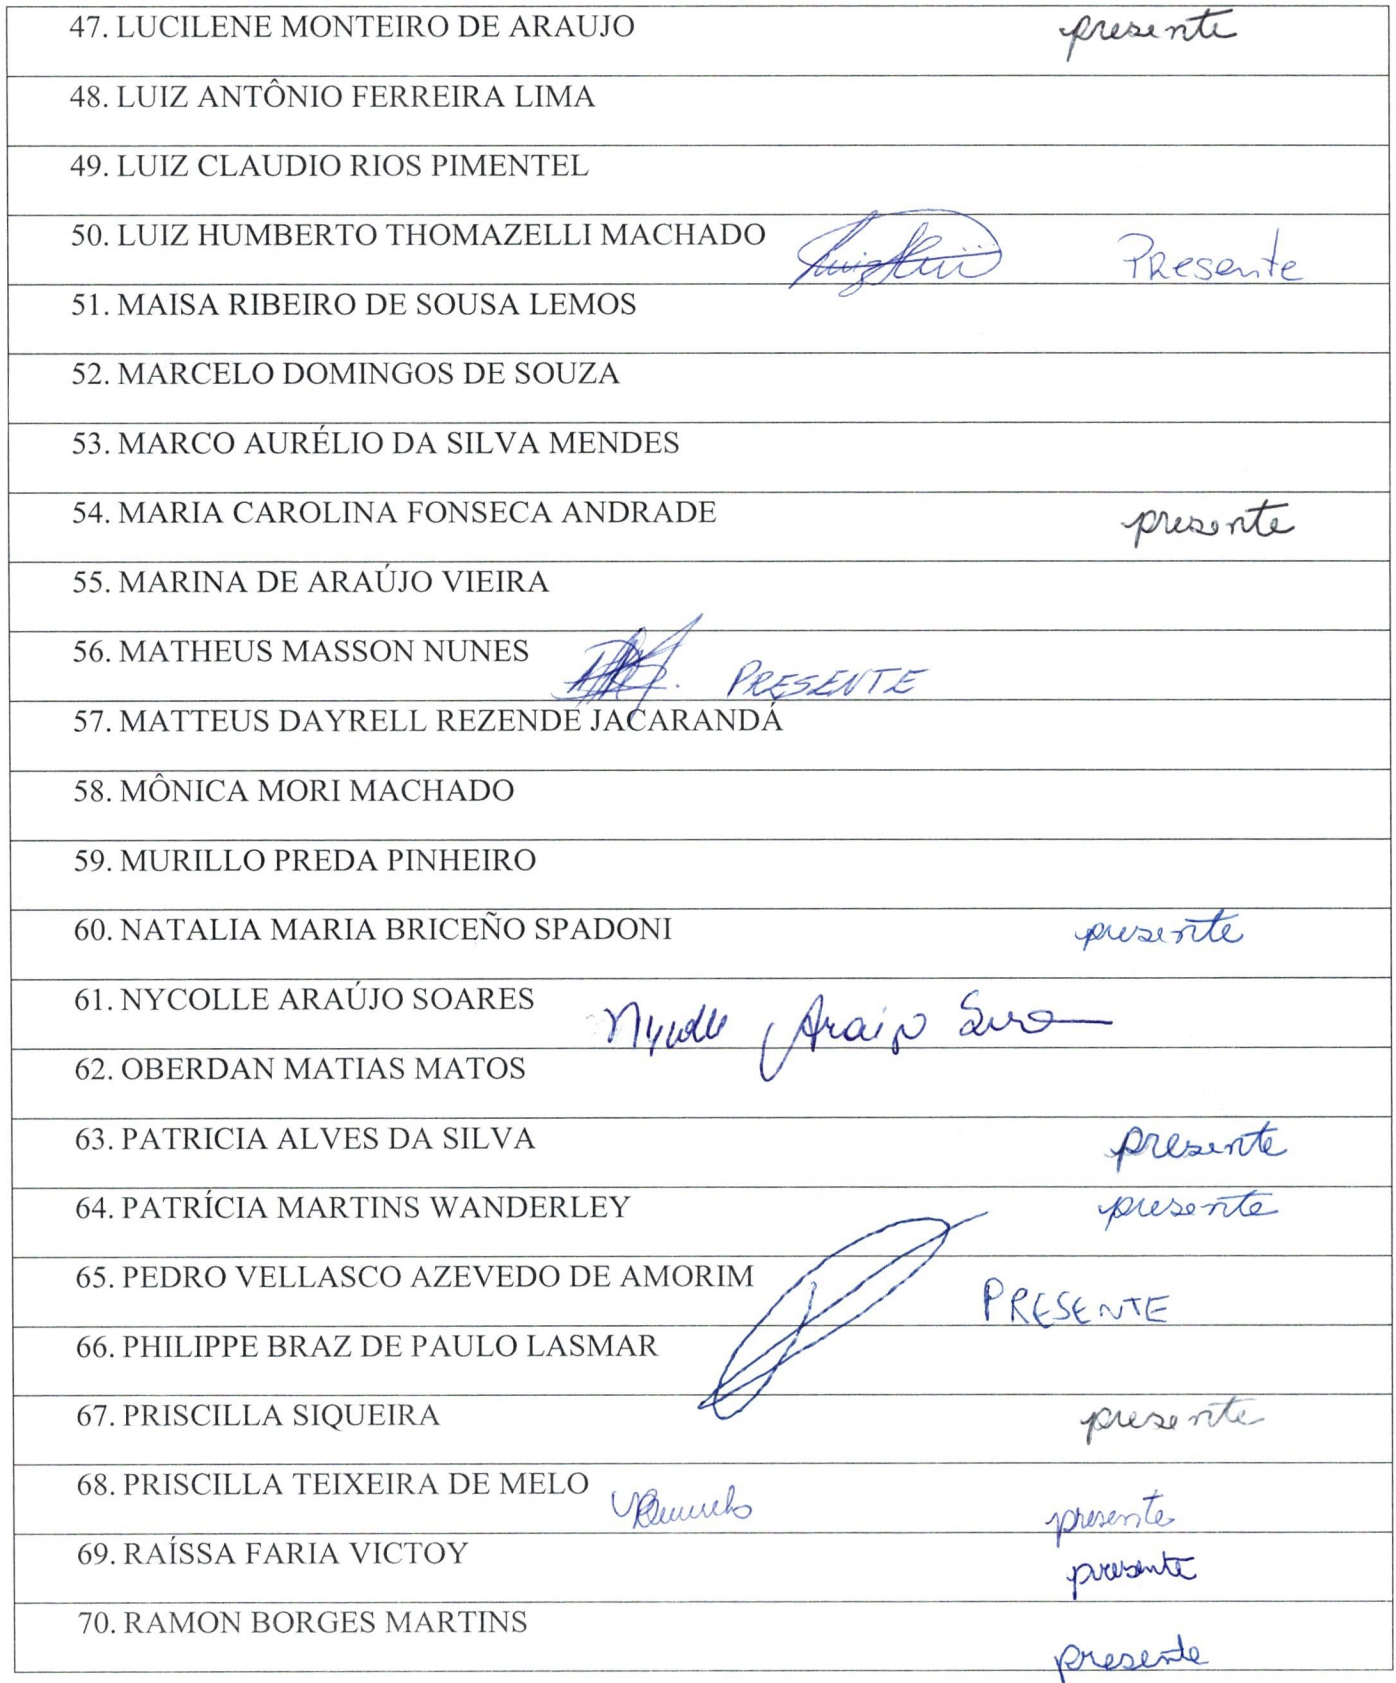 47. LUCILENE MONTEIRO DE ARAUJO presente
48. LUIZ ANTÔNIO FERREIRA LIMA
49. LUIZ CLAUDIO RIOS PIMENTEL
50. LUIZ HUMBERTO THOMAZELLI MACHADO Presente
51. MAISA RIBEIRO DE SOUSA LEMOS
52. MARCELO DOMINGOS DE SOUZA
53. MARCO AURÉLIO DA SILVA MENDES
54. MARIA CAROLINA FONSECA ANDRADE presente
55. MARINA DE ARAÚJO VIEIRA
56. MATHEUS MASSON NUNES PRESENTE
57. MATTEUS DAYRELL REZENDE JACARANDÁ
58. MÔNICA MORI MACHADO
59. MURILLO PREDA PINHEIRO
60. NATALIA MARIA BRICEÑO SPADONI presente
61. NYCOLLE ARAÚJO SOARES Nycolle Araújo
62. OBERDAN MATIAS MATOS
63. PATRICIA ALVES DA SILVA presente
64. PATRÍCIA MARTINS WANDERLEY presente
65. PEDRO VELLASCO AZEVEDO DE AMORIM PRESENTE
66. PHILIPPE BRAZ DE PAULO LASMAR
67. PRISCILLA SIQUEIRA presente
68. PRISCILLA TEIXEIRA DE MELO presente
69. RAÍSSA FARIA VICTOY presente
70. RAMON BORGES MARTINS presente